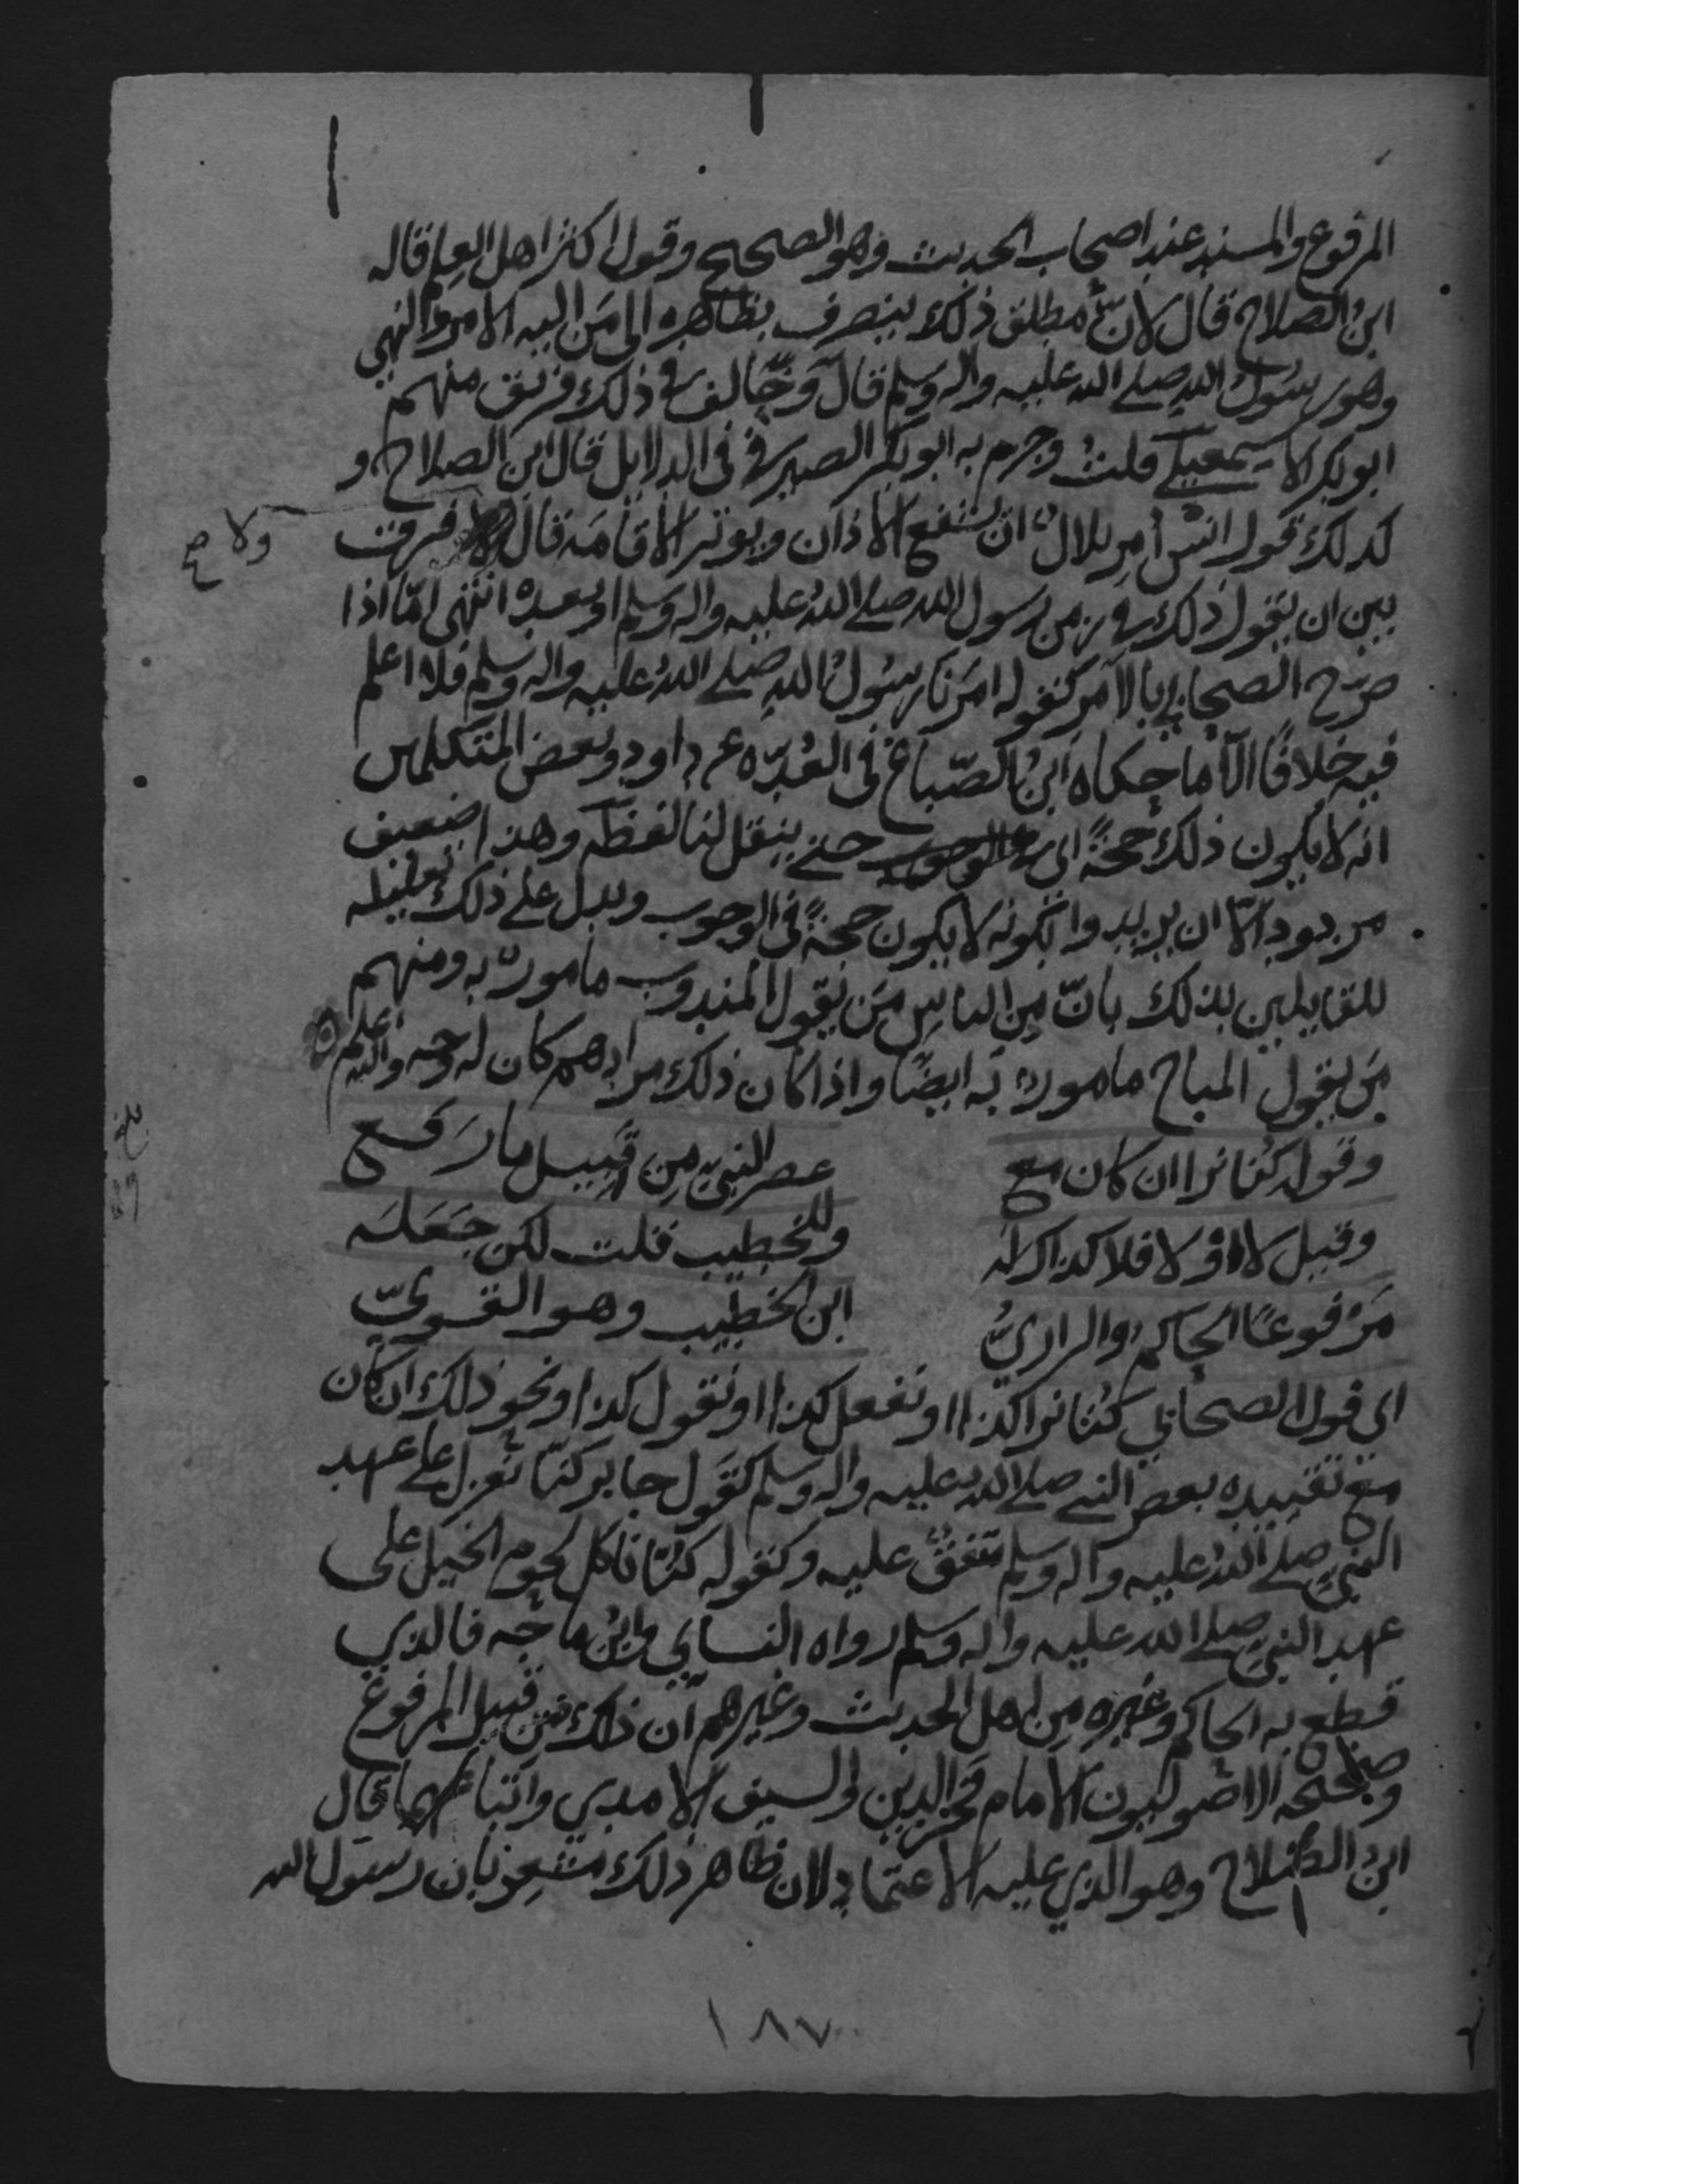 المرفوع والمسند عند اصحاب الحديث وهو الصحيح وقول اكثر اهل العلم قاله
ابن الصلاح قال لان مطلق ذلك ينصرف بظاهره الى من اليه الامر والنهي
وهو رسول الله صلى الله عليه واله وسلم قال وخالف في ذلك فريق منهم
ابو بكر الاسمعيلي قلت وجزم به ابو بكر الصيرفي في الدلايل قال ابن الصلاح و
كذلك قول انس أمر بلال ان يشفع الاذان ويوتر الاقامة قال فرق
ولا صح
بين ان يقول ذلك في زمن رسول الله صلى الله عليه واله وسلم او بعده انتهى امّا اذا
صرّح الصحابي بالامر كقوله امرنا رسول الله صلى الله عليه واله وسلم فلا اعلم
فيه خلافًا الّا ما حكاه ابن الصّباغ في العُدّه عن داود وبعض المتكلمين
انه لا يكون ذلك حجة اي حتى ينقل لنا لفظه وهذا ضعيف
مردود الّا ان يريدوا بكونه لا يكون حجةً في الوجوب ويدل على ذلك تعليله
للقايلين بذلك بانّ مِن الناس مَن يقول المندوب مامورٌ به ومنهم
مَن يقول المباح مامورٌ به ايضًا واذا كان ذلك مرادهم كان له وجه والله اعلم
وقوله كُنا نرا ان كان مع عصر النبيّ مِن قَبيل ما رَفَع
وقيل لا اوْ لا فلا كذاك له وللخطيب قلت لكن جَعَلَه
مَرْفوعًا الحاكم والرازيُّ ابن الخطيب وهو القويّ
اي قول الصحابي كُنا نرا كذا او نفعل كذا او نقول كذا او نحو ذلك ان كان
مع تقييده بعصر النبي صلى الله عليه واله وسلم كقول جابر كنّا نعزل على عهد
النبي صلى الله عليه واله وسلم متفقٌ عليه وكقوله كنّا ناكل لحوم الخيل على
عهد النبي صلى الله عليه واله وسلم رواه النساي وابن ماجه فالذي
قطع به الحاكم وغيره مِن اهل الحديث وغيرهم ان ذلك من قبيل المرفوع
وصححه الاصوليون الامام فخر الدين والسيف الامدي واتباعهما قال
ابن الصلاح وهو الذي عليه الاعتماد لان ظاهر ذلك مشعر بان رسول الله
١٨٧